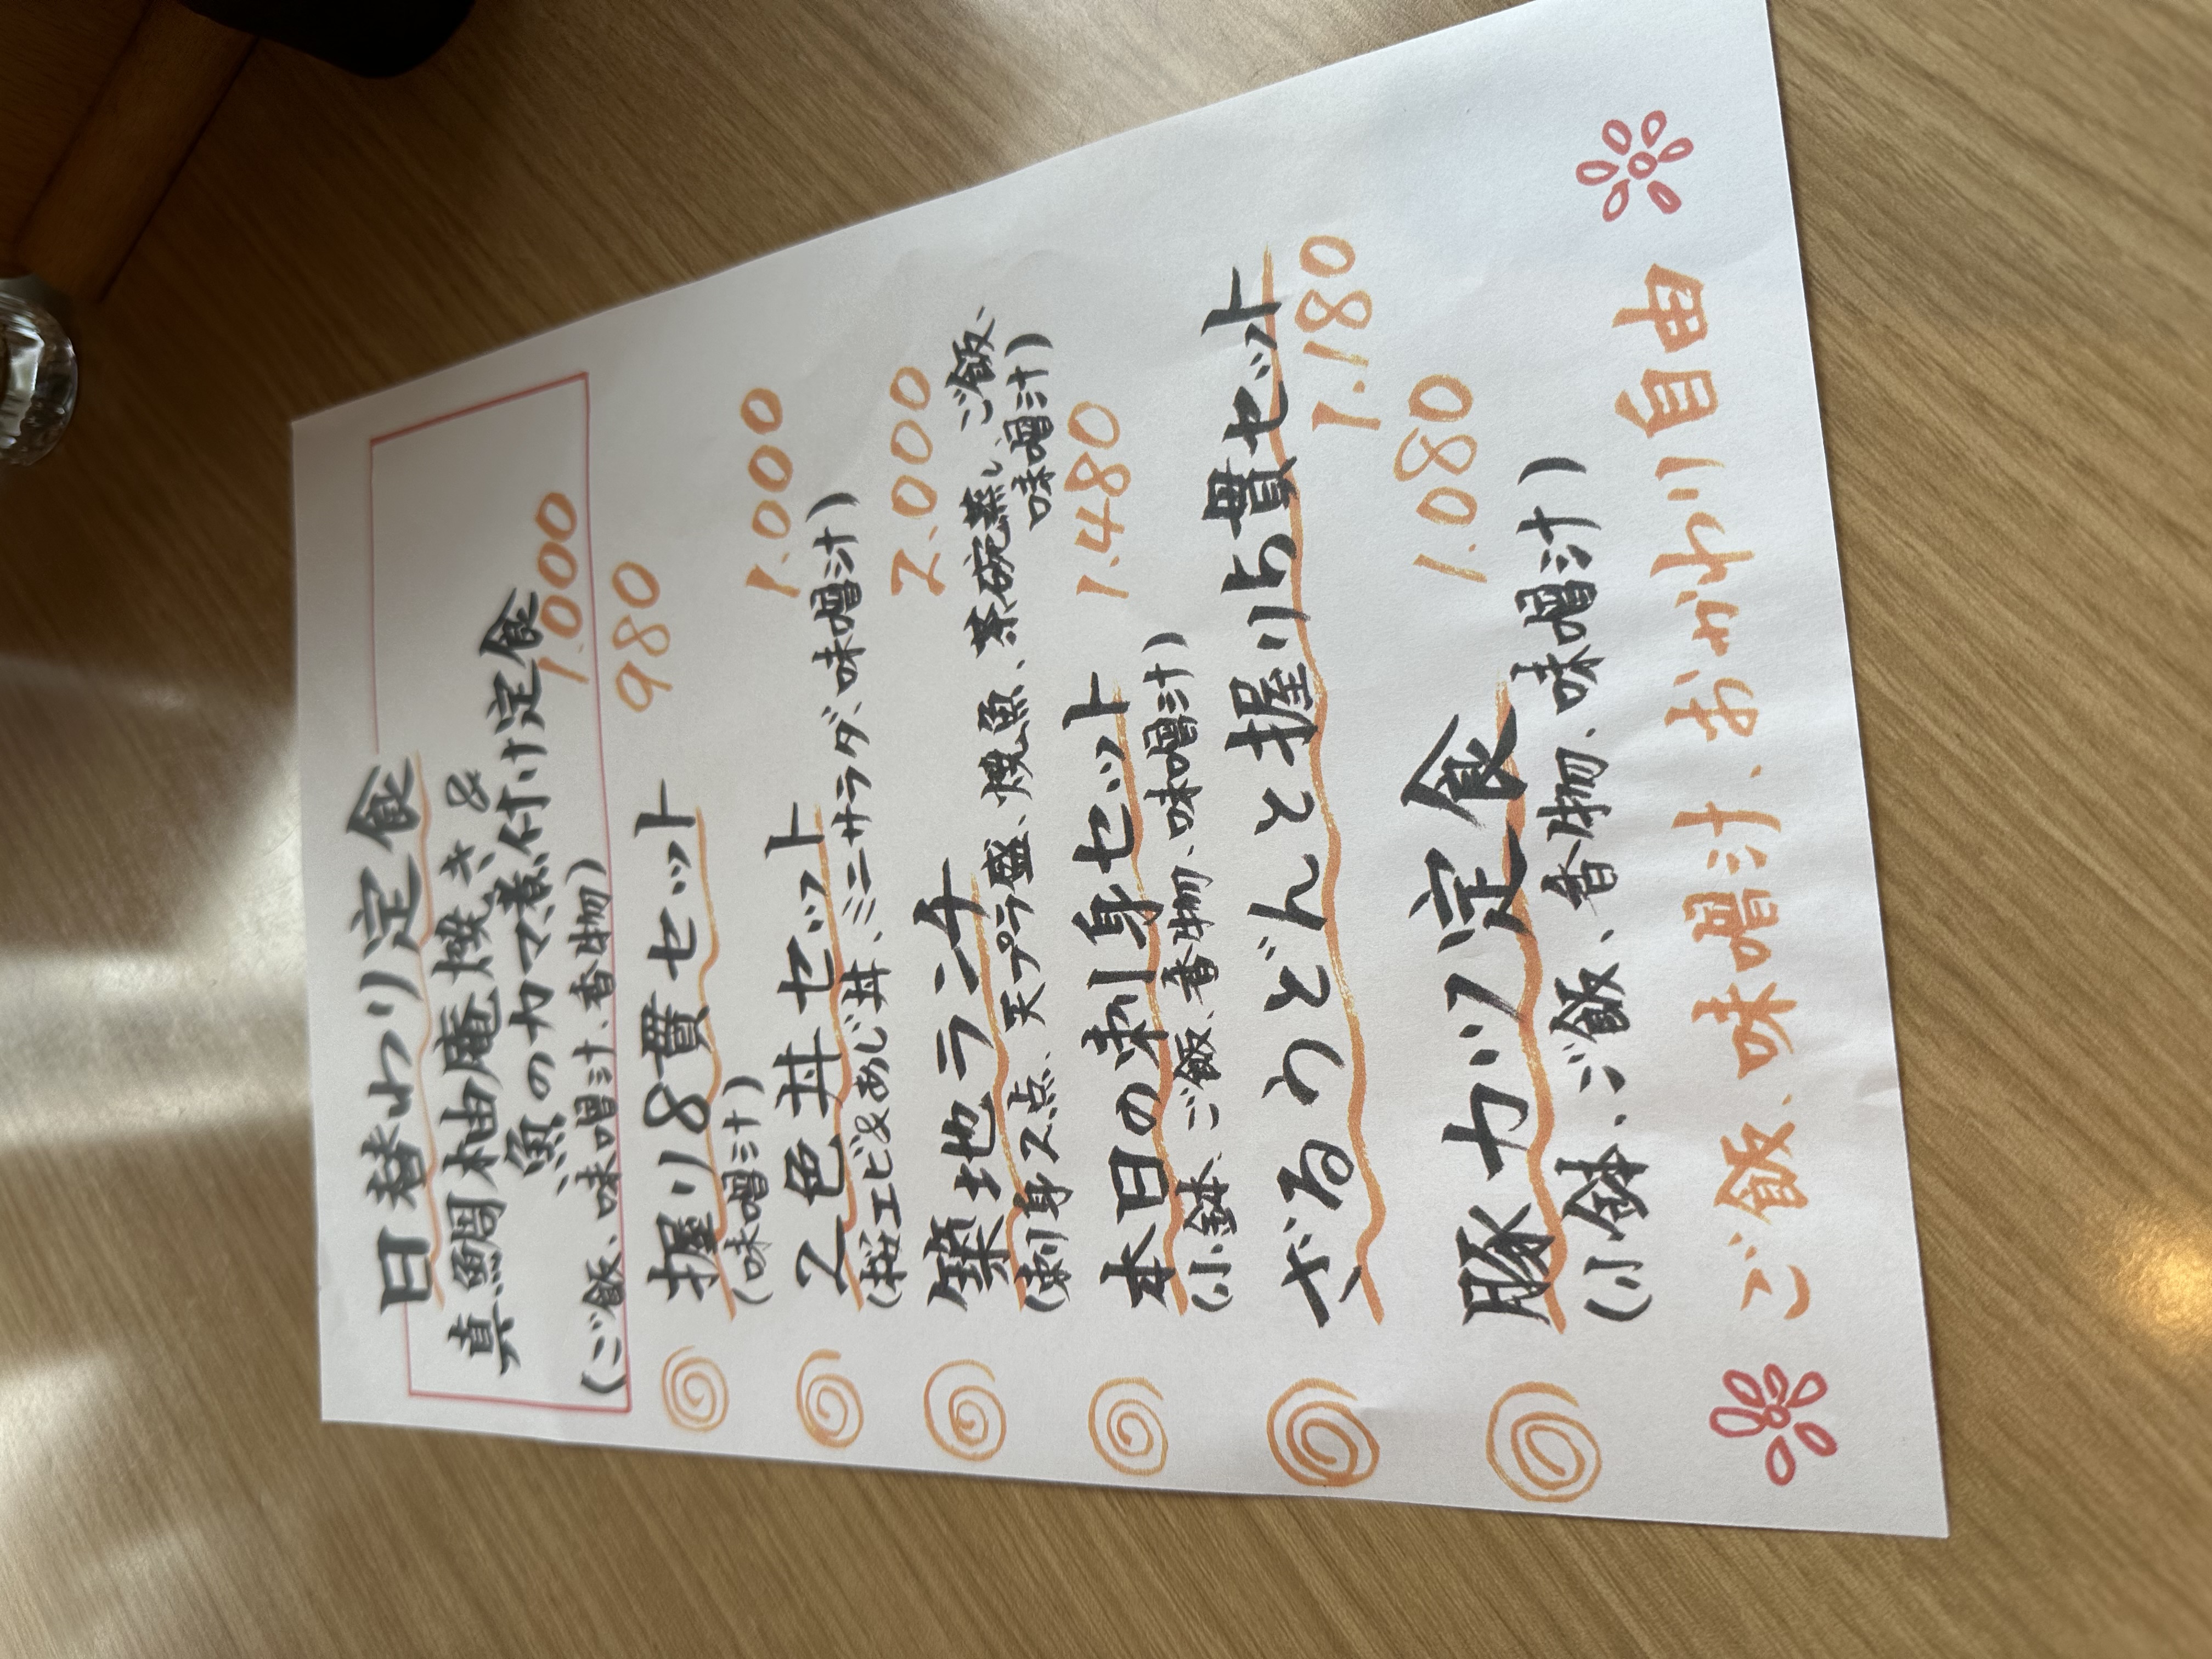 日替わり定食
真鯛柚庵焼き&
魚のカマ煮付け定食
1.000
(ご飯、味噌汁、香物)
握り8貫セット 980
(味噌汁)
2色丼セット 1.000
(桜エビ&あじ丼、ミニサラダ、味噌汁)
築地ランチ 2.000
(刺身2点、天プラ盛、焼魚、茶碗蒸し、ご飯、
味噌汁)
本日の刺身セット 1.480
(小鉢、ご飯、香物、味噌汁)
ざるうどんと握り5貫セット
1.180
豚カツ定食 1.080
(小鉢、ご飯、香物、味噌汁)
ご飯、味噌汁、おかわり自由